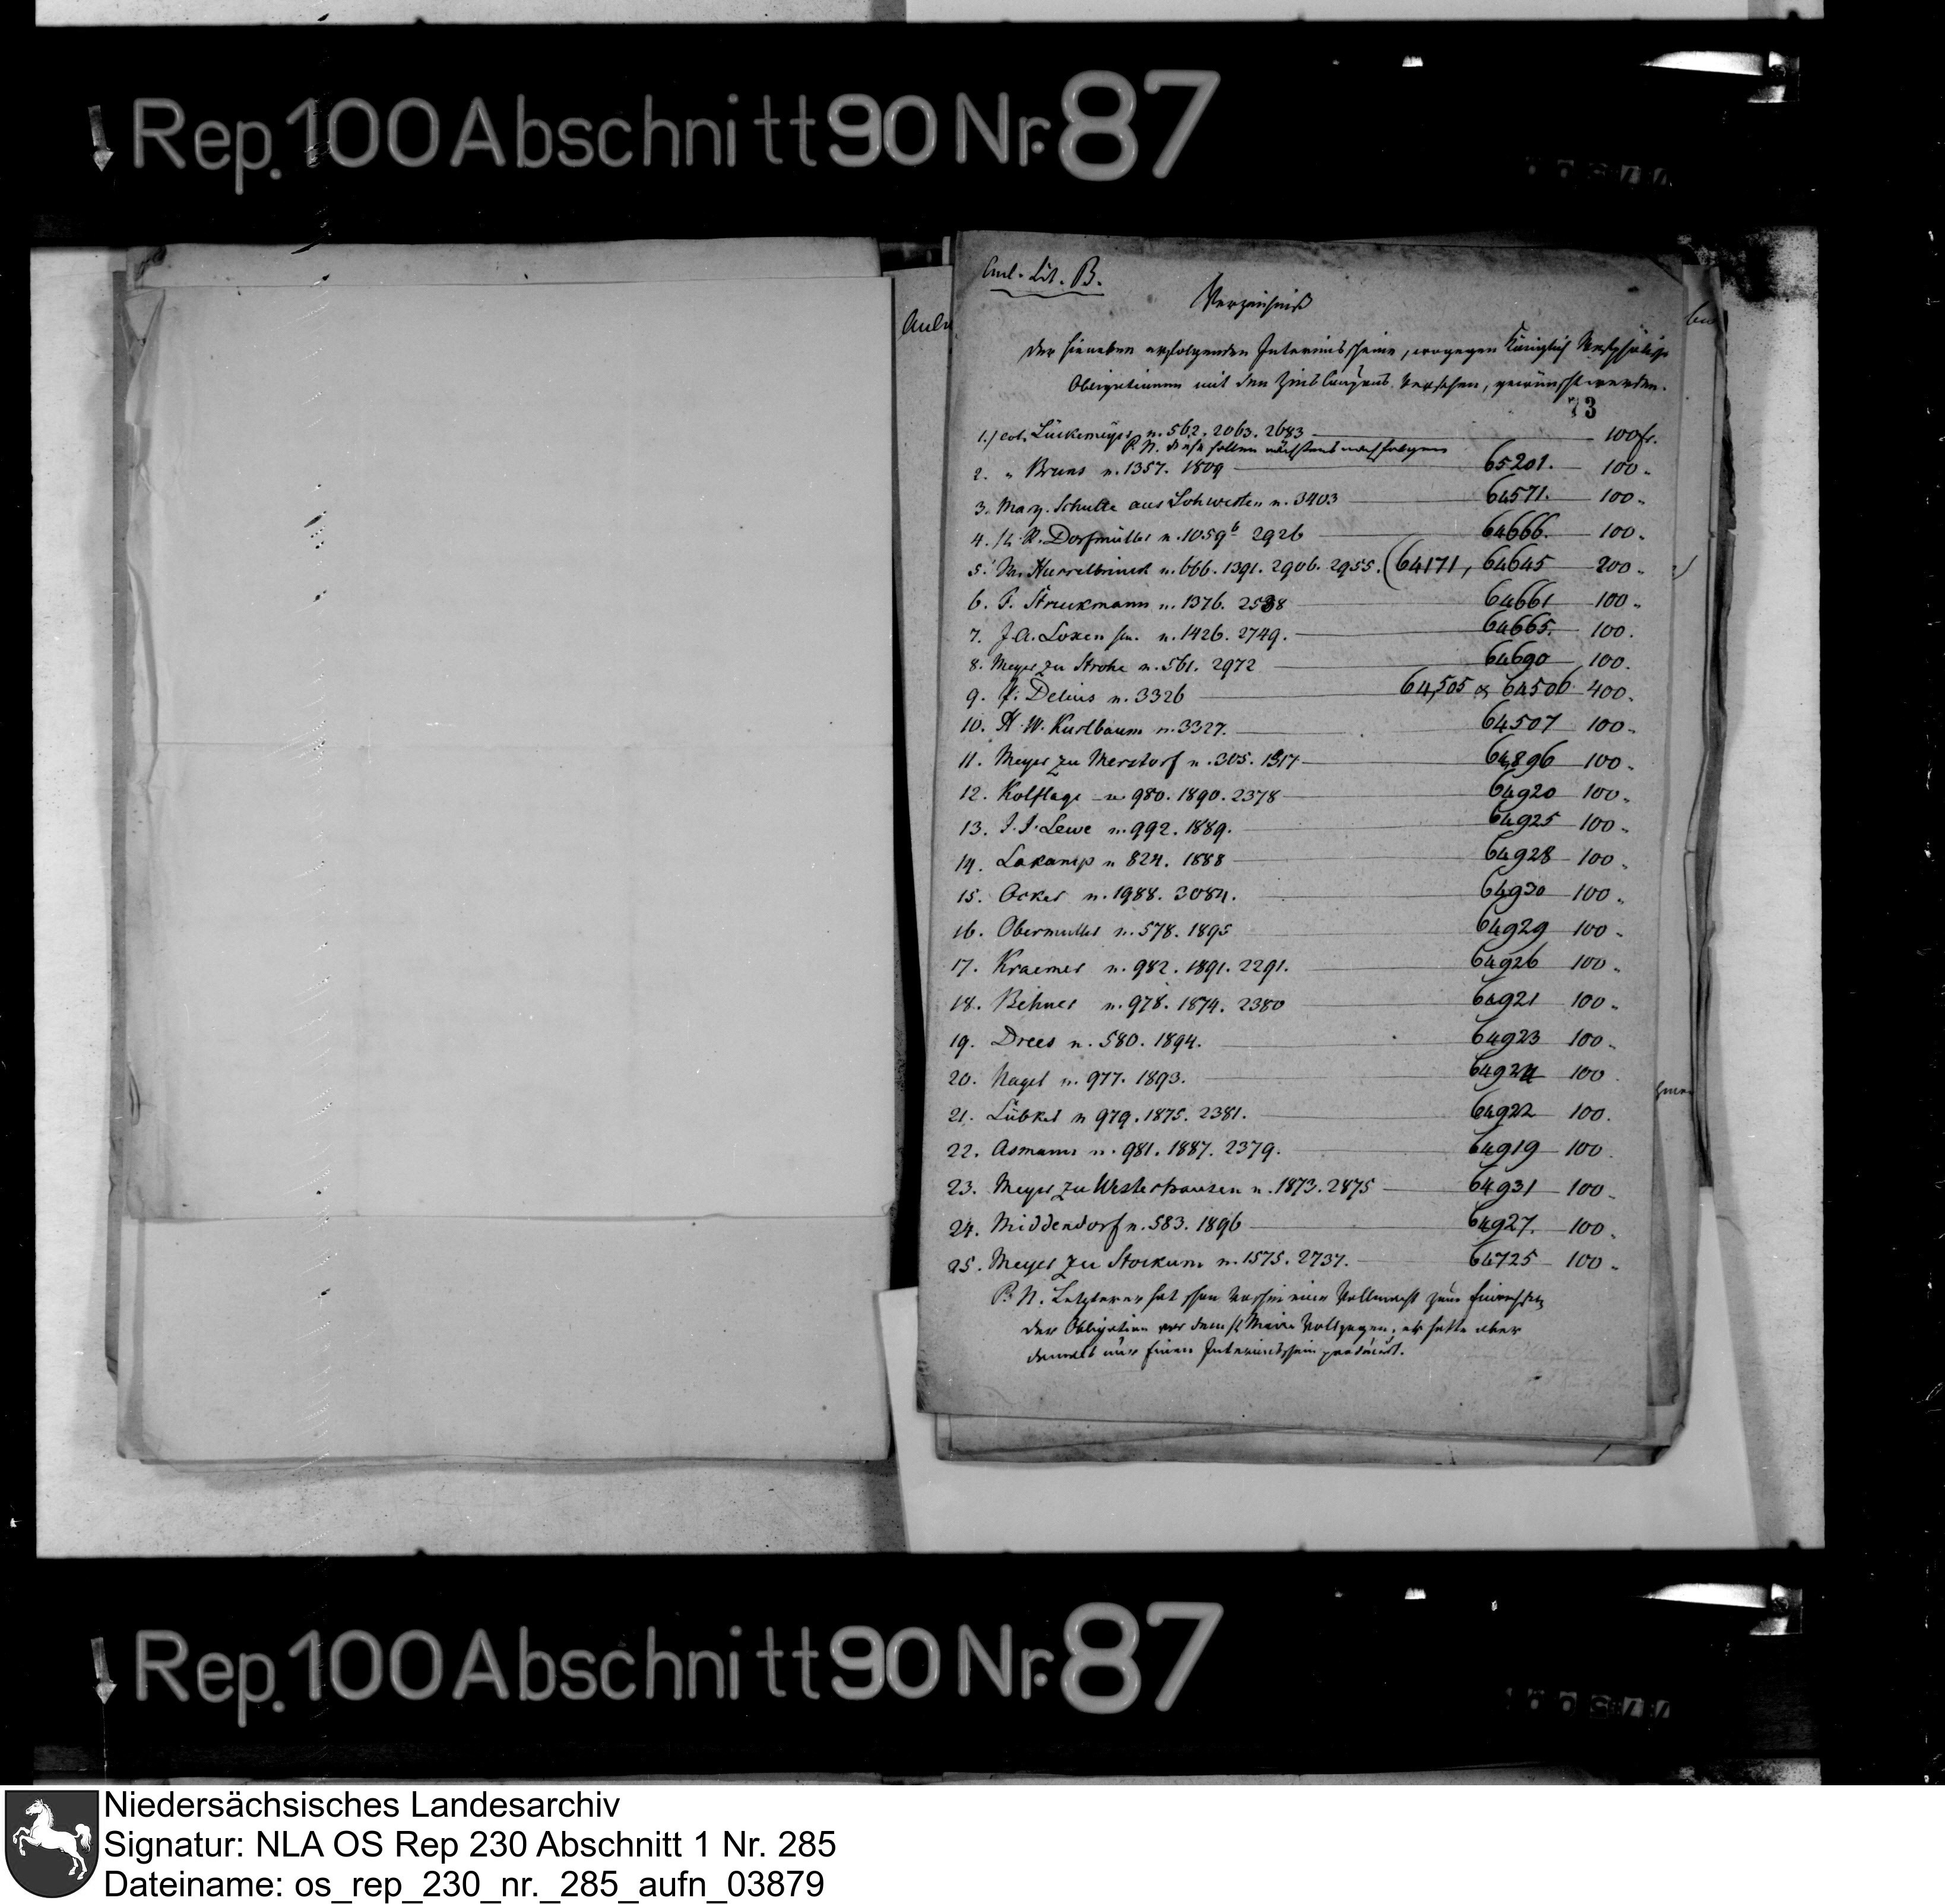 Rep. 100 Abschnitt 90 Nr. 87
Anl. Lit. B.
Verzeichniß
der hieneben erfolgenden Interimsscheine, wogegen Königlich Westphälische
Obligationen mit den Zins Coupons versehen, gewünscht werden.
73
1.) Col. Lückemeyer n. 562. 2063. 2683 100 fr.
P. N. diese sollen nächstens nachfolgen
2. " Bruns n. 1357. 1809 65201. 100 "
3. Marg. Schulte aus Lohwesten n. 3403 64571. 100 "
4. H. R. Dorfmüller n. 1059b 2926 64666. 100 "
5. Kurrelbrinck n. 666. 1391. 2906. 2955. (64171, 64645 200 "
6. P. Struckmann n. 1376. 2538 64661 100 "
7. J. A. Loxen sen. n. 1426. 2749. 64665. 100.
8. Meyer zu Strohe n. 561. 2972 64690 100.
9. F. Delius n. 3326 64,505 & 64506 400 "
10. H. W. Kurlbaum n. 3327. 64507 100 "
11. Meyer zu Merstorf n. 305. 1317 64896 100 "
12. Kolflage n 980. 1890. 2378 64920 100 "
13. J. J. Lewe n. 992. 1889. 64925 100 "
14. Lakamp n 824. 1888 64928 100 "
15. Ocker n. 1988. 3084. 64930 100 "
16. Obermuller n. 578. 1895 64929 100 "
17. Kraemer n. 982. 1891. 2291. 64926 100 "
18. Behner n. 978. 1874. 2380 64921 100 "
19. Drees n. 580. 1894. 64923 100 "
20. Nagel n. 977. 1893. 64924 100
21. Lübker n 979. 1875. 2381. 64922 100.
22. Asmann n. 981. 1887. 2379. 64919 100
23. Meyer zu Westerhausen n. 1873. 2875 64931 100 "
24. Middendorf n. 583. 1896 64927. 100 "
25. Meyer zu Stockum n. 1575. 2737. 64725 100 "
P. N. Letzterer hat schon vorhin eine Vollmacht zum
der Obligation vor dem H. Maire vollzogen, er hatte aber
damals nur einen Interimsschein producirt.
Rep. 100 Abschnitt 90 Nr. 87
Niedersächsisches Landesarchiv
Signatur: NLA OS Rep 230 Abschnitt 1 Nr. 285
Dateiname: os_rep_230_nr._285_aufn_03879